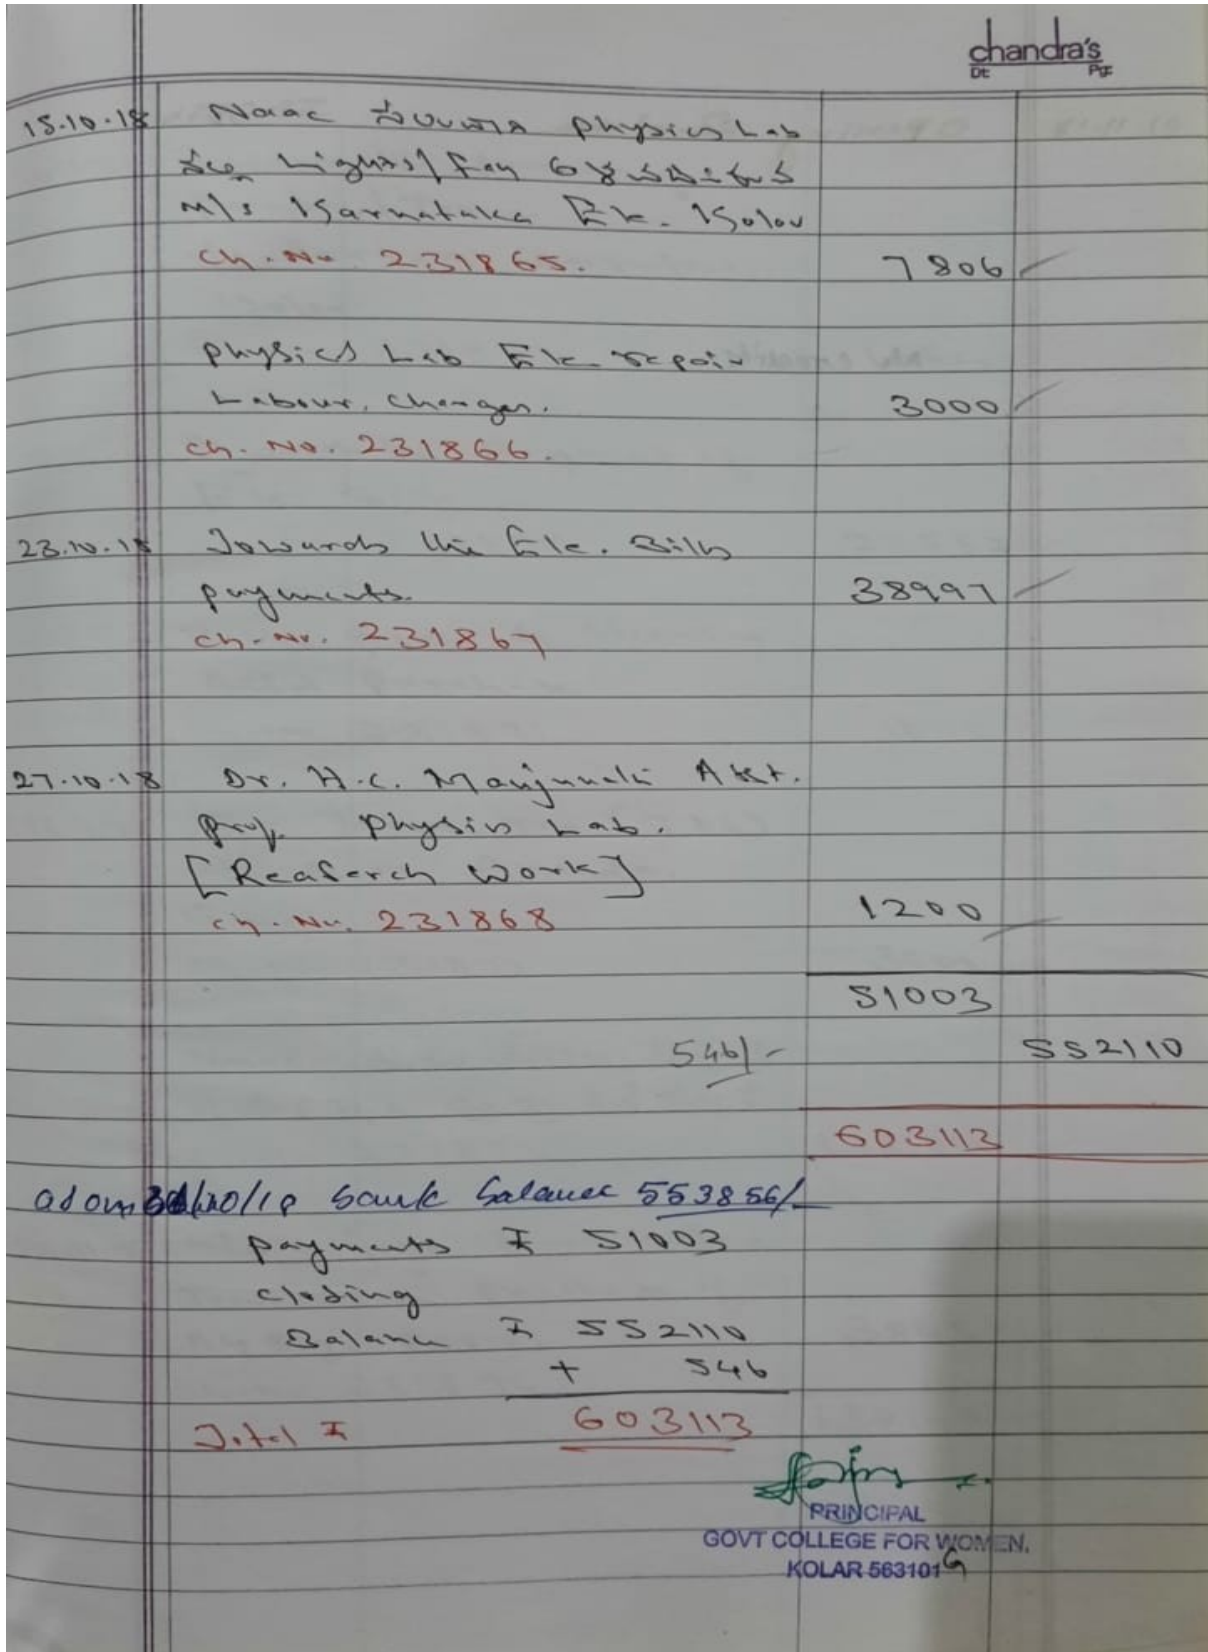 chandra's
Dt Pg
15.10.18 Naac ಸಂಬಂಧ Physics Lab
Lights / Fan
M/s Karnataka Ele. Kolar
Ch. No. 231865. 7806
Physics Lab Ele repair
Labour, Charges. 3000
Ch. No. 231866.
23.10.18 Towards the Ele. Bills
payments. 38997
Ch. No. 231867
27.10.18 Dr. H.C. Manjunath Asst.
prof. Physics Lab.
[Reaserch Work]
Ch. No. 231868 1200
51003
546/- 552110
603113
as on /10/18 bank balance 553856/-
payments ₹ 51003
closing
Balance ₹ 552110
+ 546
Total ₹ 603113
PRINCIPAL
GOVT COLLEGE FOR WOMEN,
KOLAR 563101